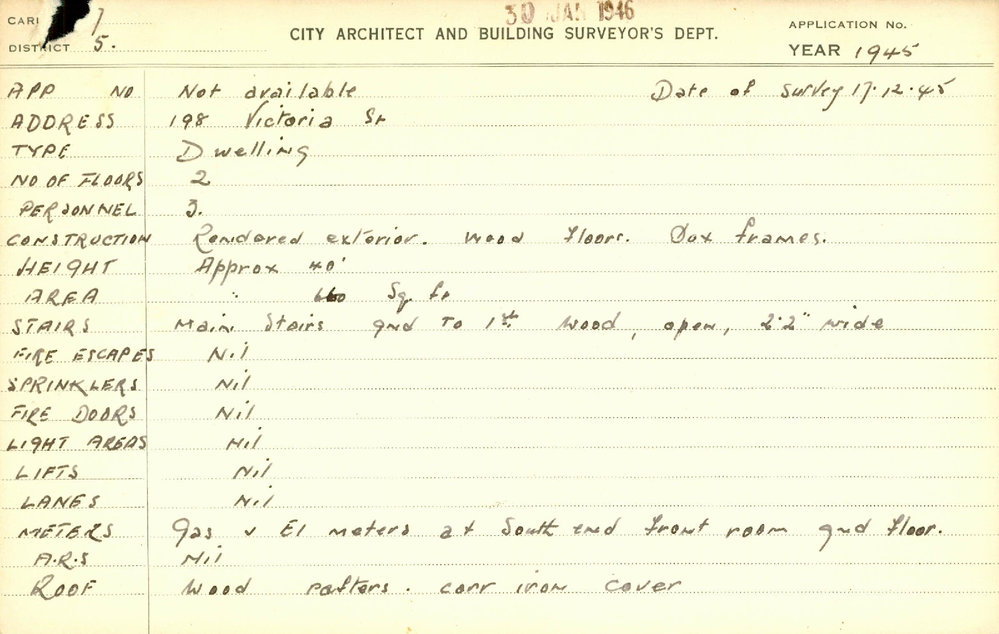 30 JAN 1946
CARD 7
DISTRICT 5.
CITY ARCHITECT AND BUILDING SURVEYOR'S DEPT.
APPLICATION No.
YEAR 1945
APP NO Not available Date of Survey 17.12.45
ADDRESS 198 Victoria St
TYPE Dwelling
NO OF FLOORS 2
PERSONNEL 3.
CONSTRUCTION Rendered exterior. Wood floors. frames.
HEIGHT Approx 40'
AREA " 660 Sq ft
STAIRS Main Stairs gnd to 1st Wood, open, 2'2" wide
FIRE ESCAPES Nil
SPRINKLERS Nil
FIRE DOORS Nil
LIGHT AREAS Nil
LIFTS Nil
LANES Nil
METERS Gas & El meters at South end front room gnd floor.
A.R.S Nil
ROOF Wood rafters. corr iron cover